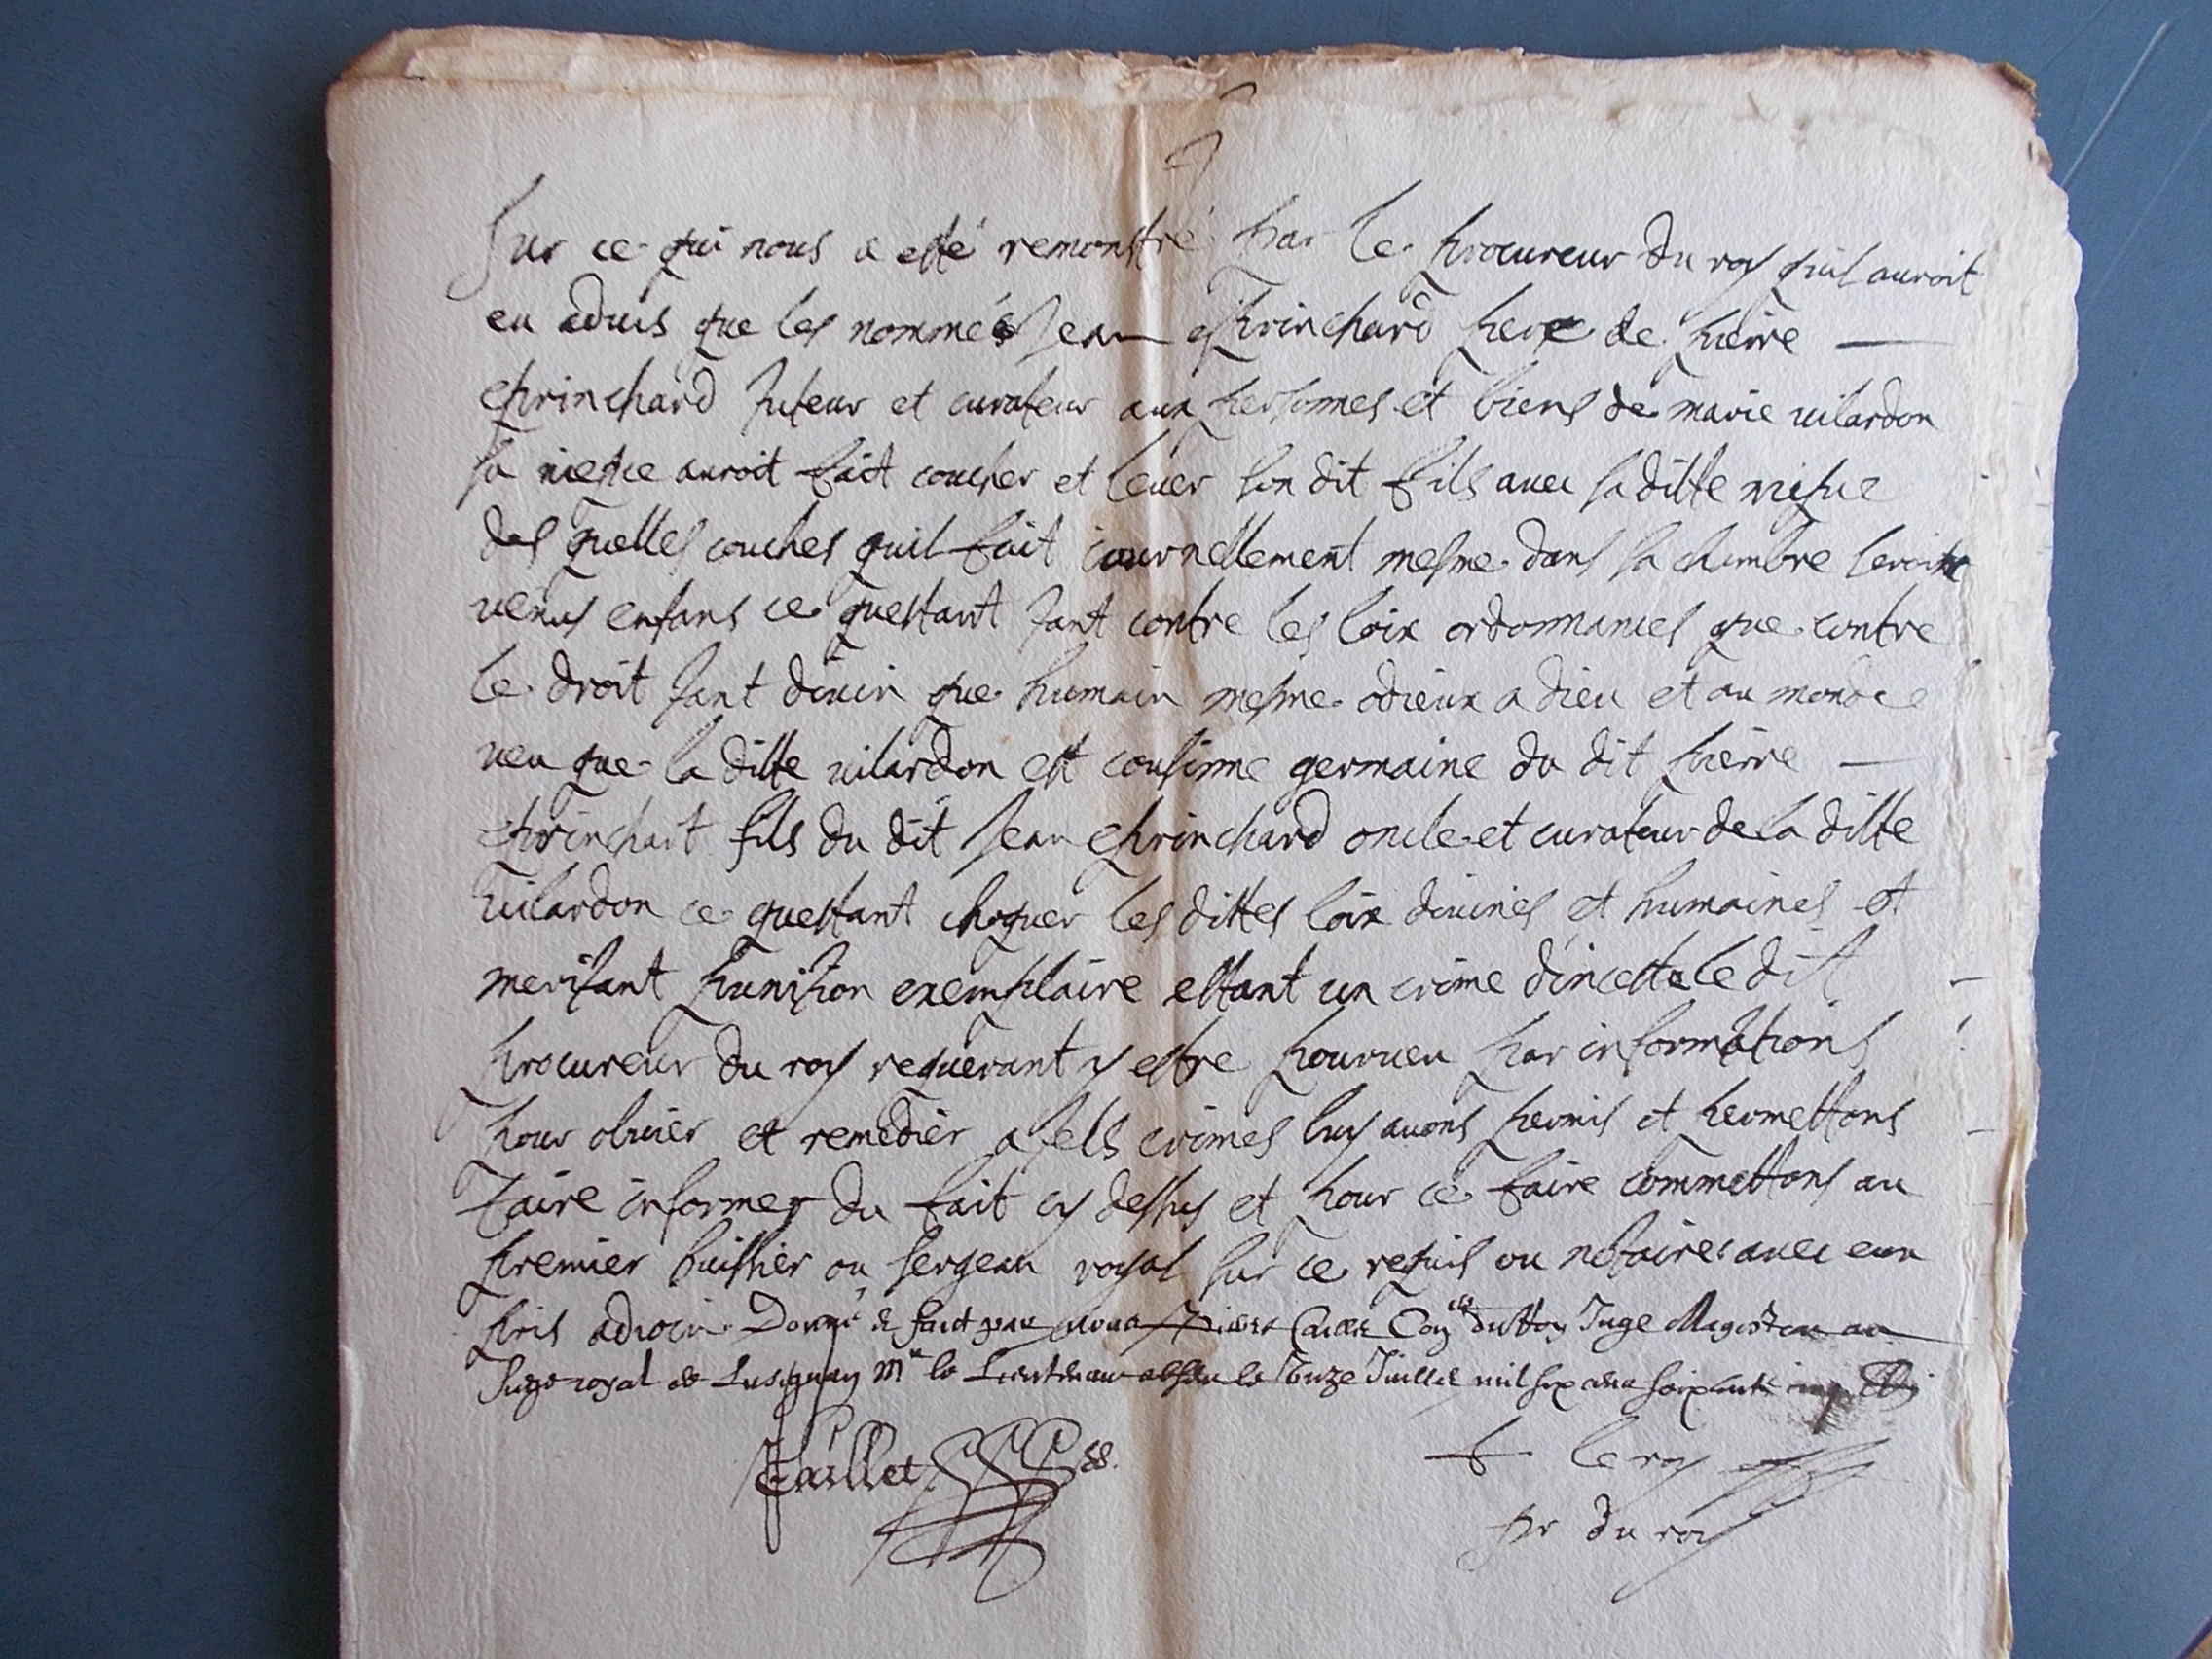 Sur ce qui nous a esté remonstré par le procureur du roy quil auroit
eu aduis que les nommés Jean eprinchard pere de pierre
eprinchard tuteur et curateur aux personnes et biens de marie uilardon
sa niepce auroit fait coucher et leuer son dit fils auec sa ditte niepce
des quelles couches quil fait iournellement mesme dans sa chambre seroit
uenus enfans ce questant tant contre les loix ordonnances que contre
le droit tant diuin que humain mesme odieux a dieu et au monde
ueu que la ditte uilardon est cousinne germaine du dit pierre
eprinchart fils du dit Jean eprinchard oncle et curateur de la ditte
uilardon ce questant choquer les dittes loix diuines et humaines et
meritant punition exemplaire estant un crime dinceste le dit
procureur du roy requerant y estre pourueu par informations
pour obuier et remedier a tels crimes luy auons permis et permettons
faire informer du fait cy dessus et pour ce faire commettons au
premier huissier ou sergean royal sur ce requis ou notaires auec eux
pris adioin Donné & faict par nous Coner du Roy Juge Magistrat au
Siege royal de Lusignan Mr le Lieutenant absen le Juillet mil six cens soixante
faillet
leroy
pr du roy